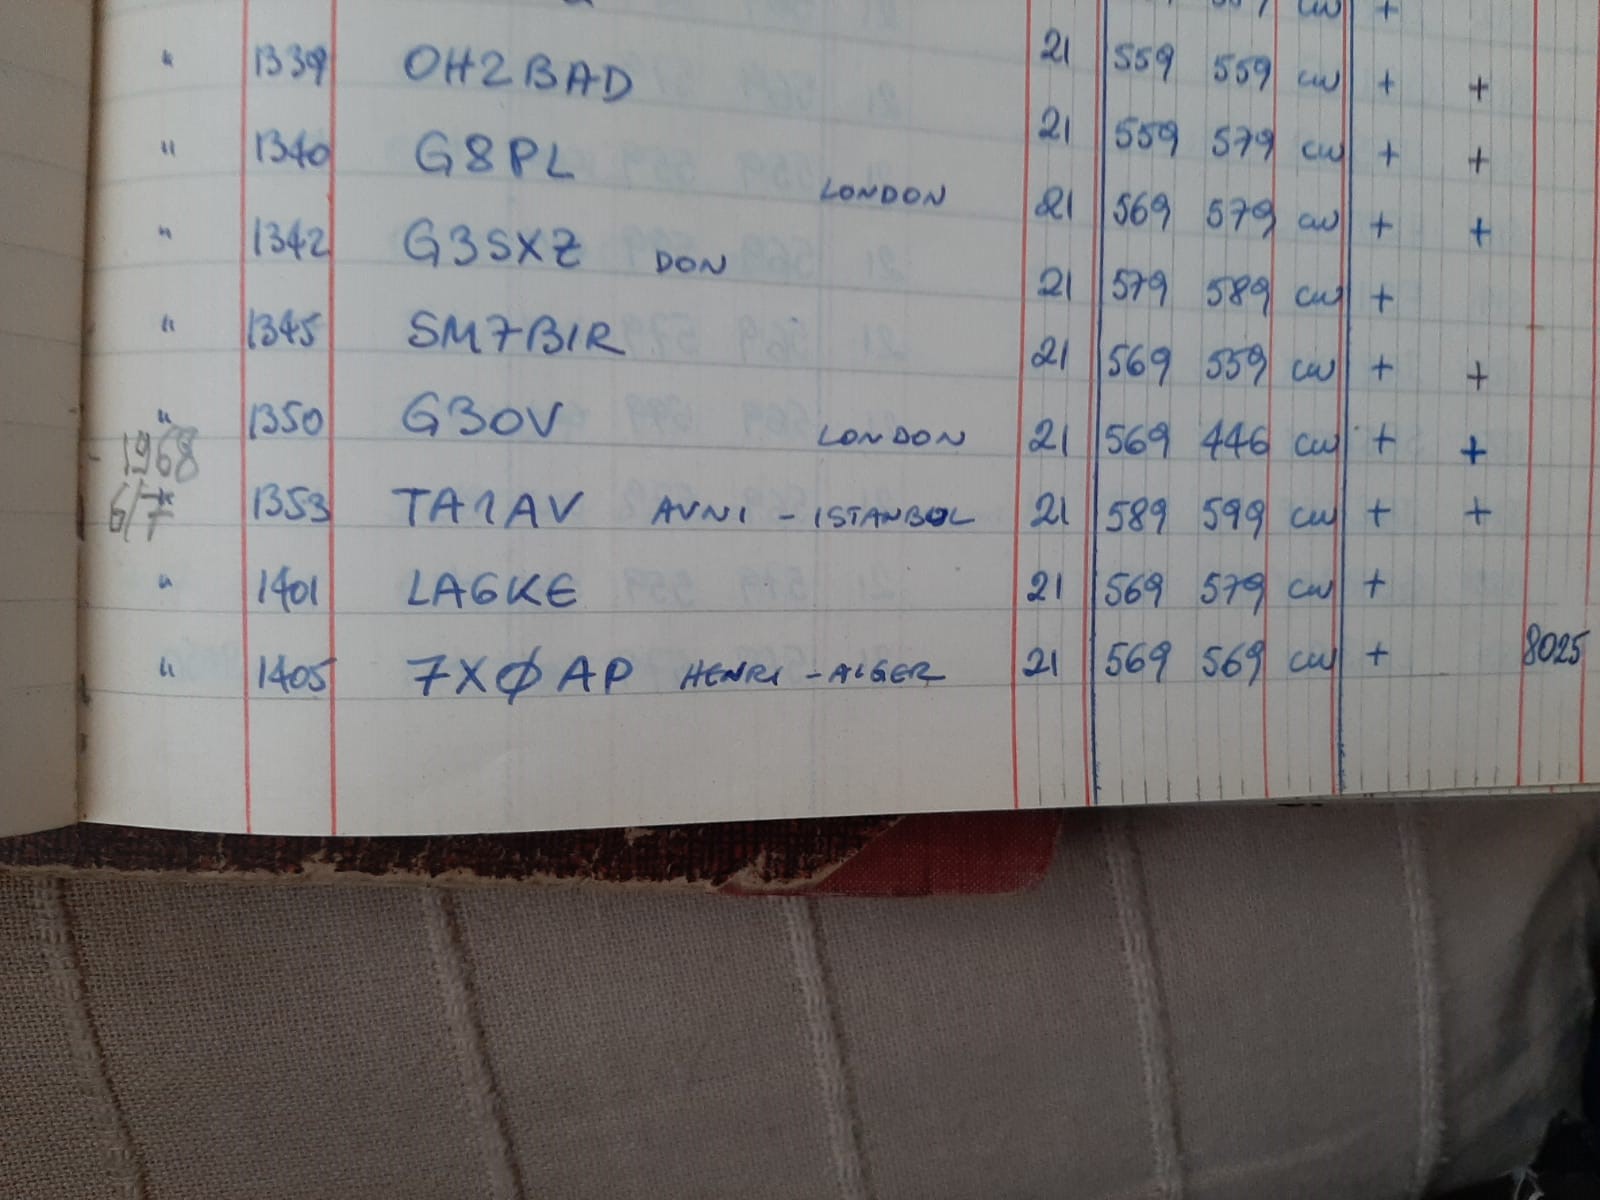 cw +
21 559 559 cw + +
" 1339 OH2BAD 21 559 579 cw + +
" 1340 G8PL LONDON 21 569 579 cw + +
" 1342 G3SXZ DON 21 579 589 cw +
" 1345 SM7BIR 21 569 559 cw + +
" 1350 G3OV LONDON 21 569 446 cw + +
- 1968
6/7 1353 TA1AV AVNI - ISTANBOL 21 589 599 cw + +
" 1401 LA6KE 21 569 579 cw +
" 1405 7XØAP HENRI - ALGER 21 569 569 cw + 8025